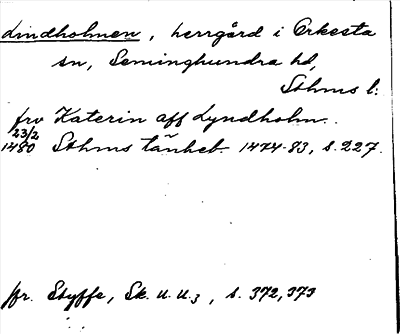 Lindholmen, herrgård i Orkesta
sn, Seminghundra hd,
Sthms l:
fru Katerin aff Lyndholm.
23/2
1480 Sthms tänkeb. 1474-83, s. 227.
jfr. Styffe, Sk. u. u.3, s. 372, 373